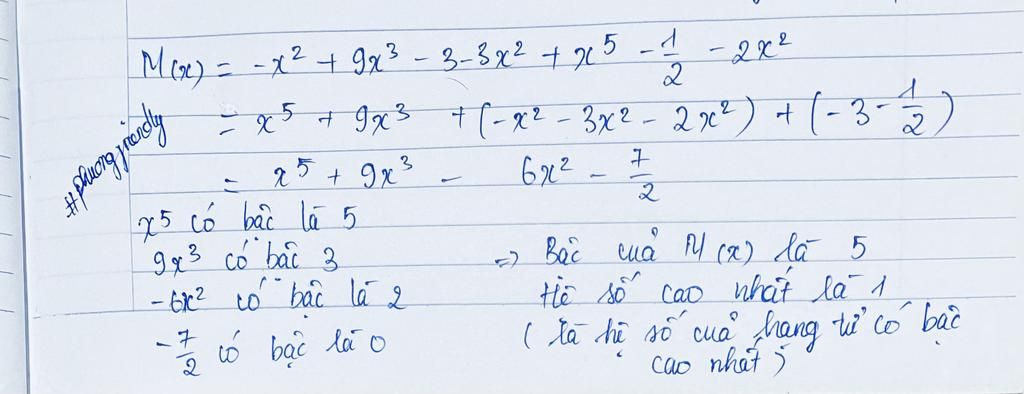 M(x) = -x² + 9x³ - 3 - 3x² + x⁵ - 1/2 - 2x²
= x⁵ + 9x³ + (-x² - 3x² - 2x²) + (-3 - 1/2)
= x⁵ + 9x³ - 6x² - 7/2
#phuongfriendly
x⁵ có bậc là 5
9x³ có bậc 3
-6x² có bậc là 2
-7/2 có bậc là 0
=> Bậc cuả M(x) là 5
Hệ số cao nhất là 1
(là hệ số cuả hạng tử có bậc
cao nhất)